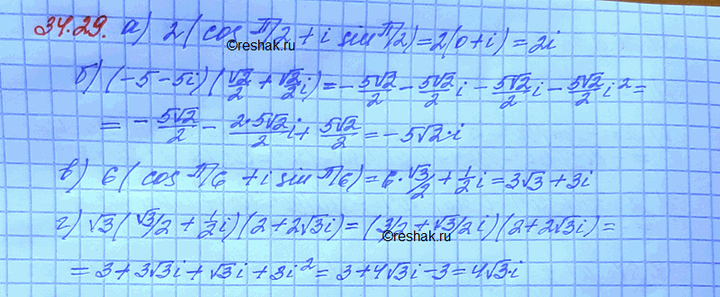 34.29. а) 2(cos π/2 + i sin π/2) = 2(0+i) = 2i
©reshak.ru
б) (-5-5i)(√2/2 + √2/2 i) = -5√2/2 - 5√2/2 i - 5√2/2 i - 5√2/2 i² =
= -5√2/2 - 2·5√2/2 i + 5√2/2 = -5√2·i
в) 6(cos π/6 + i sin π/6) = 6·√3/2 + 1/2 i = 3√3 + 3i
г) √3(√3/2 + 1/2 i)(2+2√3i) = (3/2 + √3/2 i)(2+2√3i) =
©reshak.ru
= 3 + 3√3i + √3i + 3i² = 3 + 4√3i - 3 = 4√3i